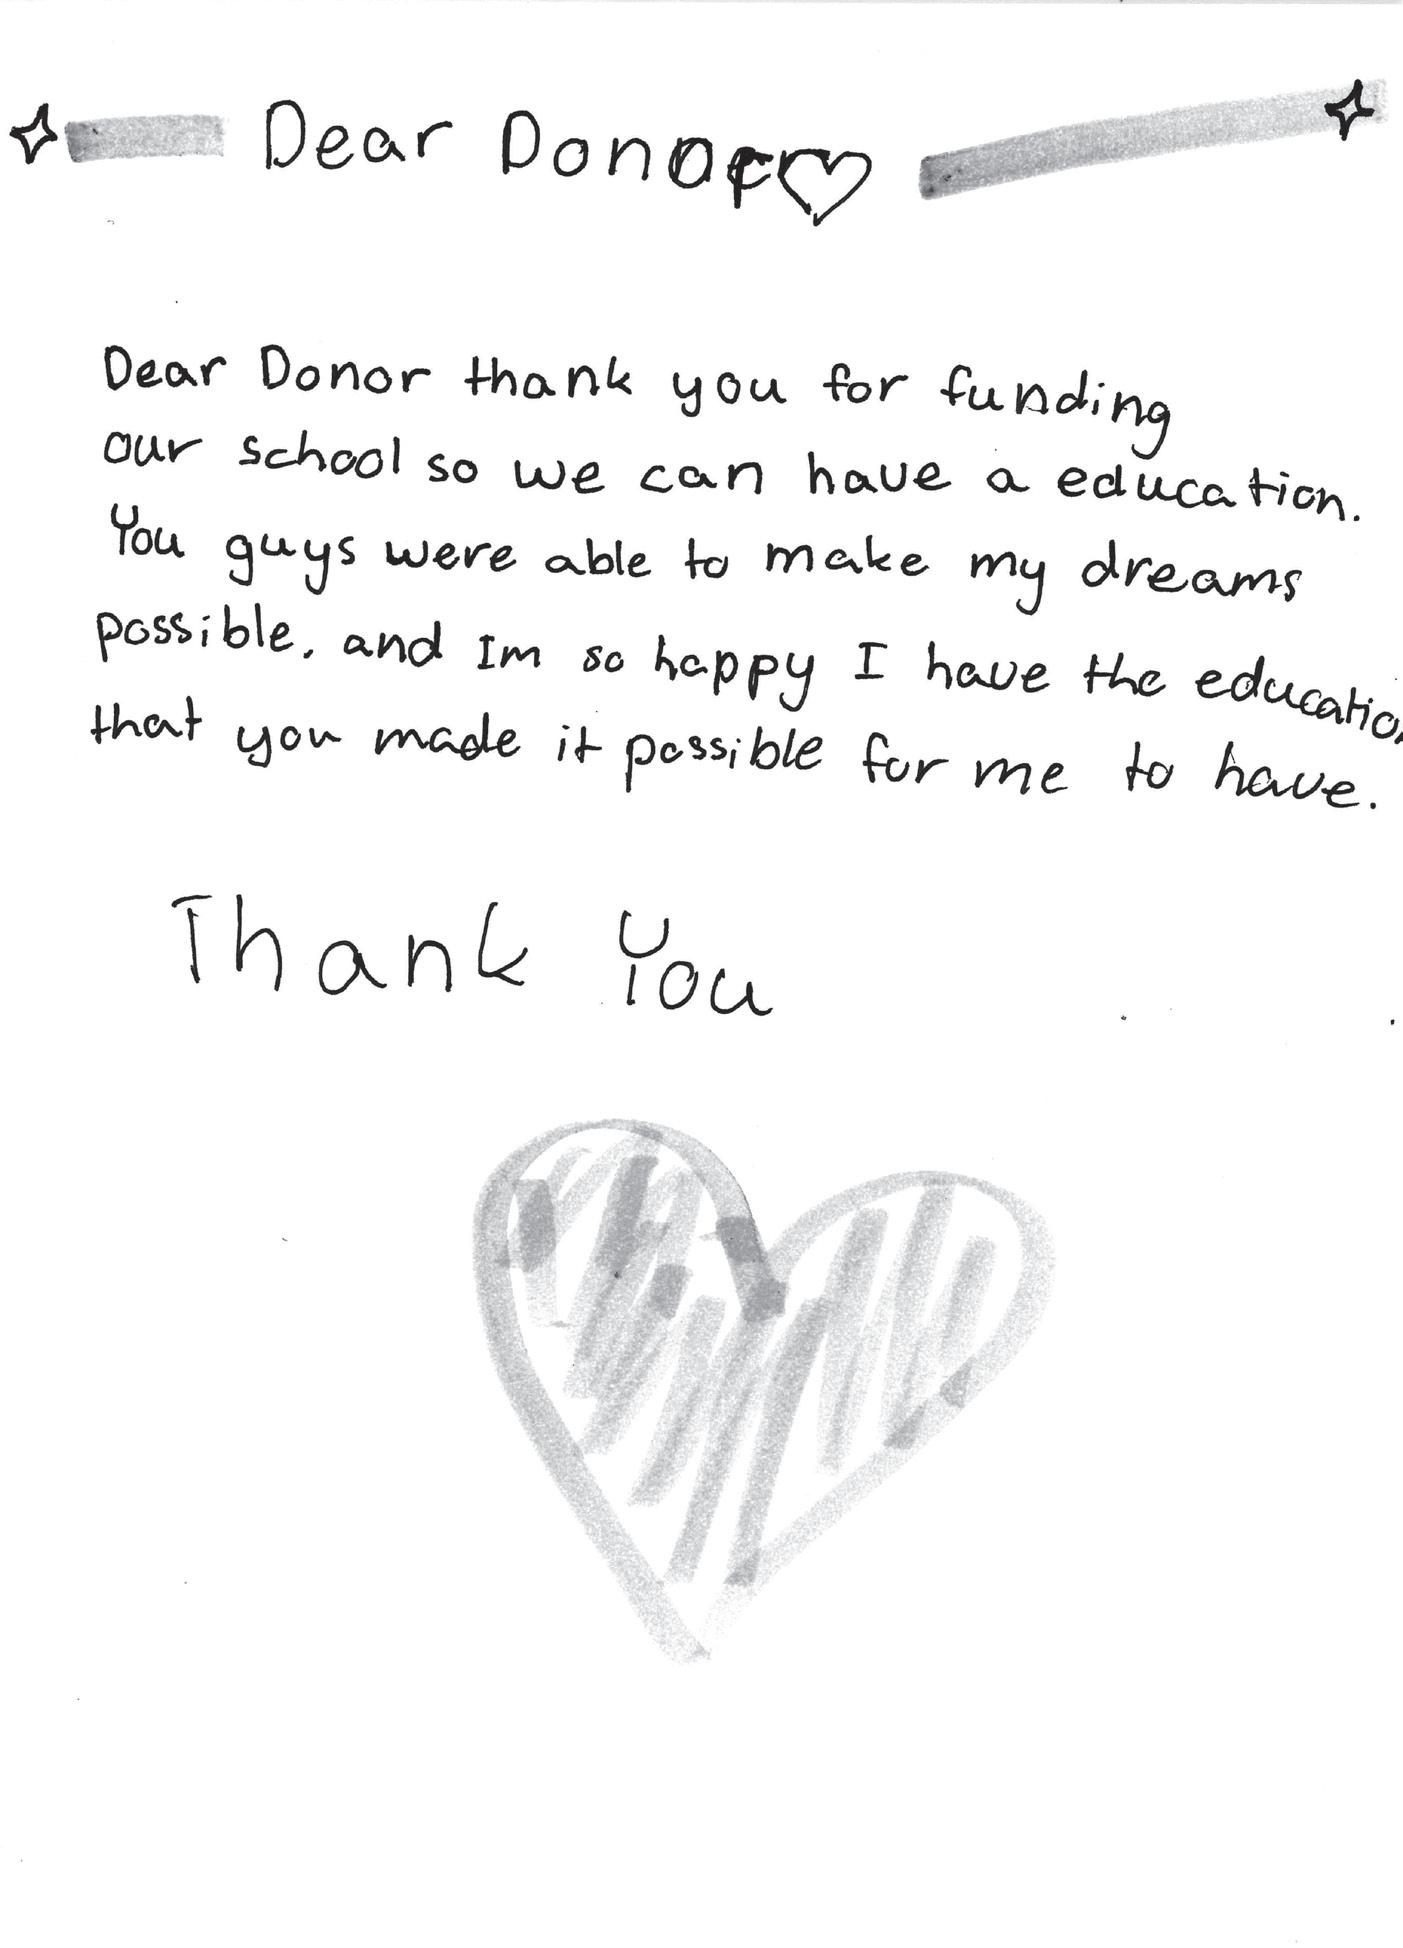 Dear Donor
Dear Donor thank you for funding
our school so we can have a education.
You guys were able to make my dreams
possible, and Im so happy I have the education
that you made it possible for me to have.
Thank You